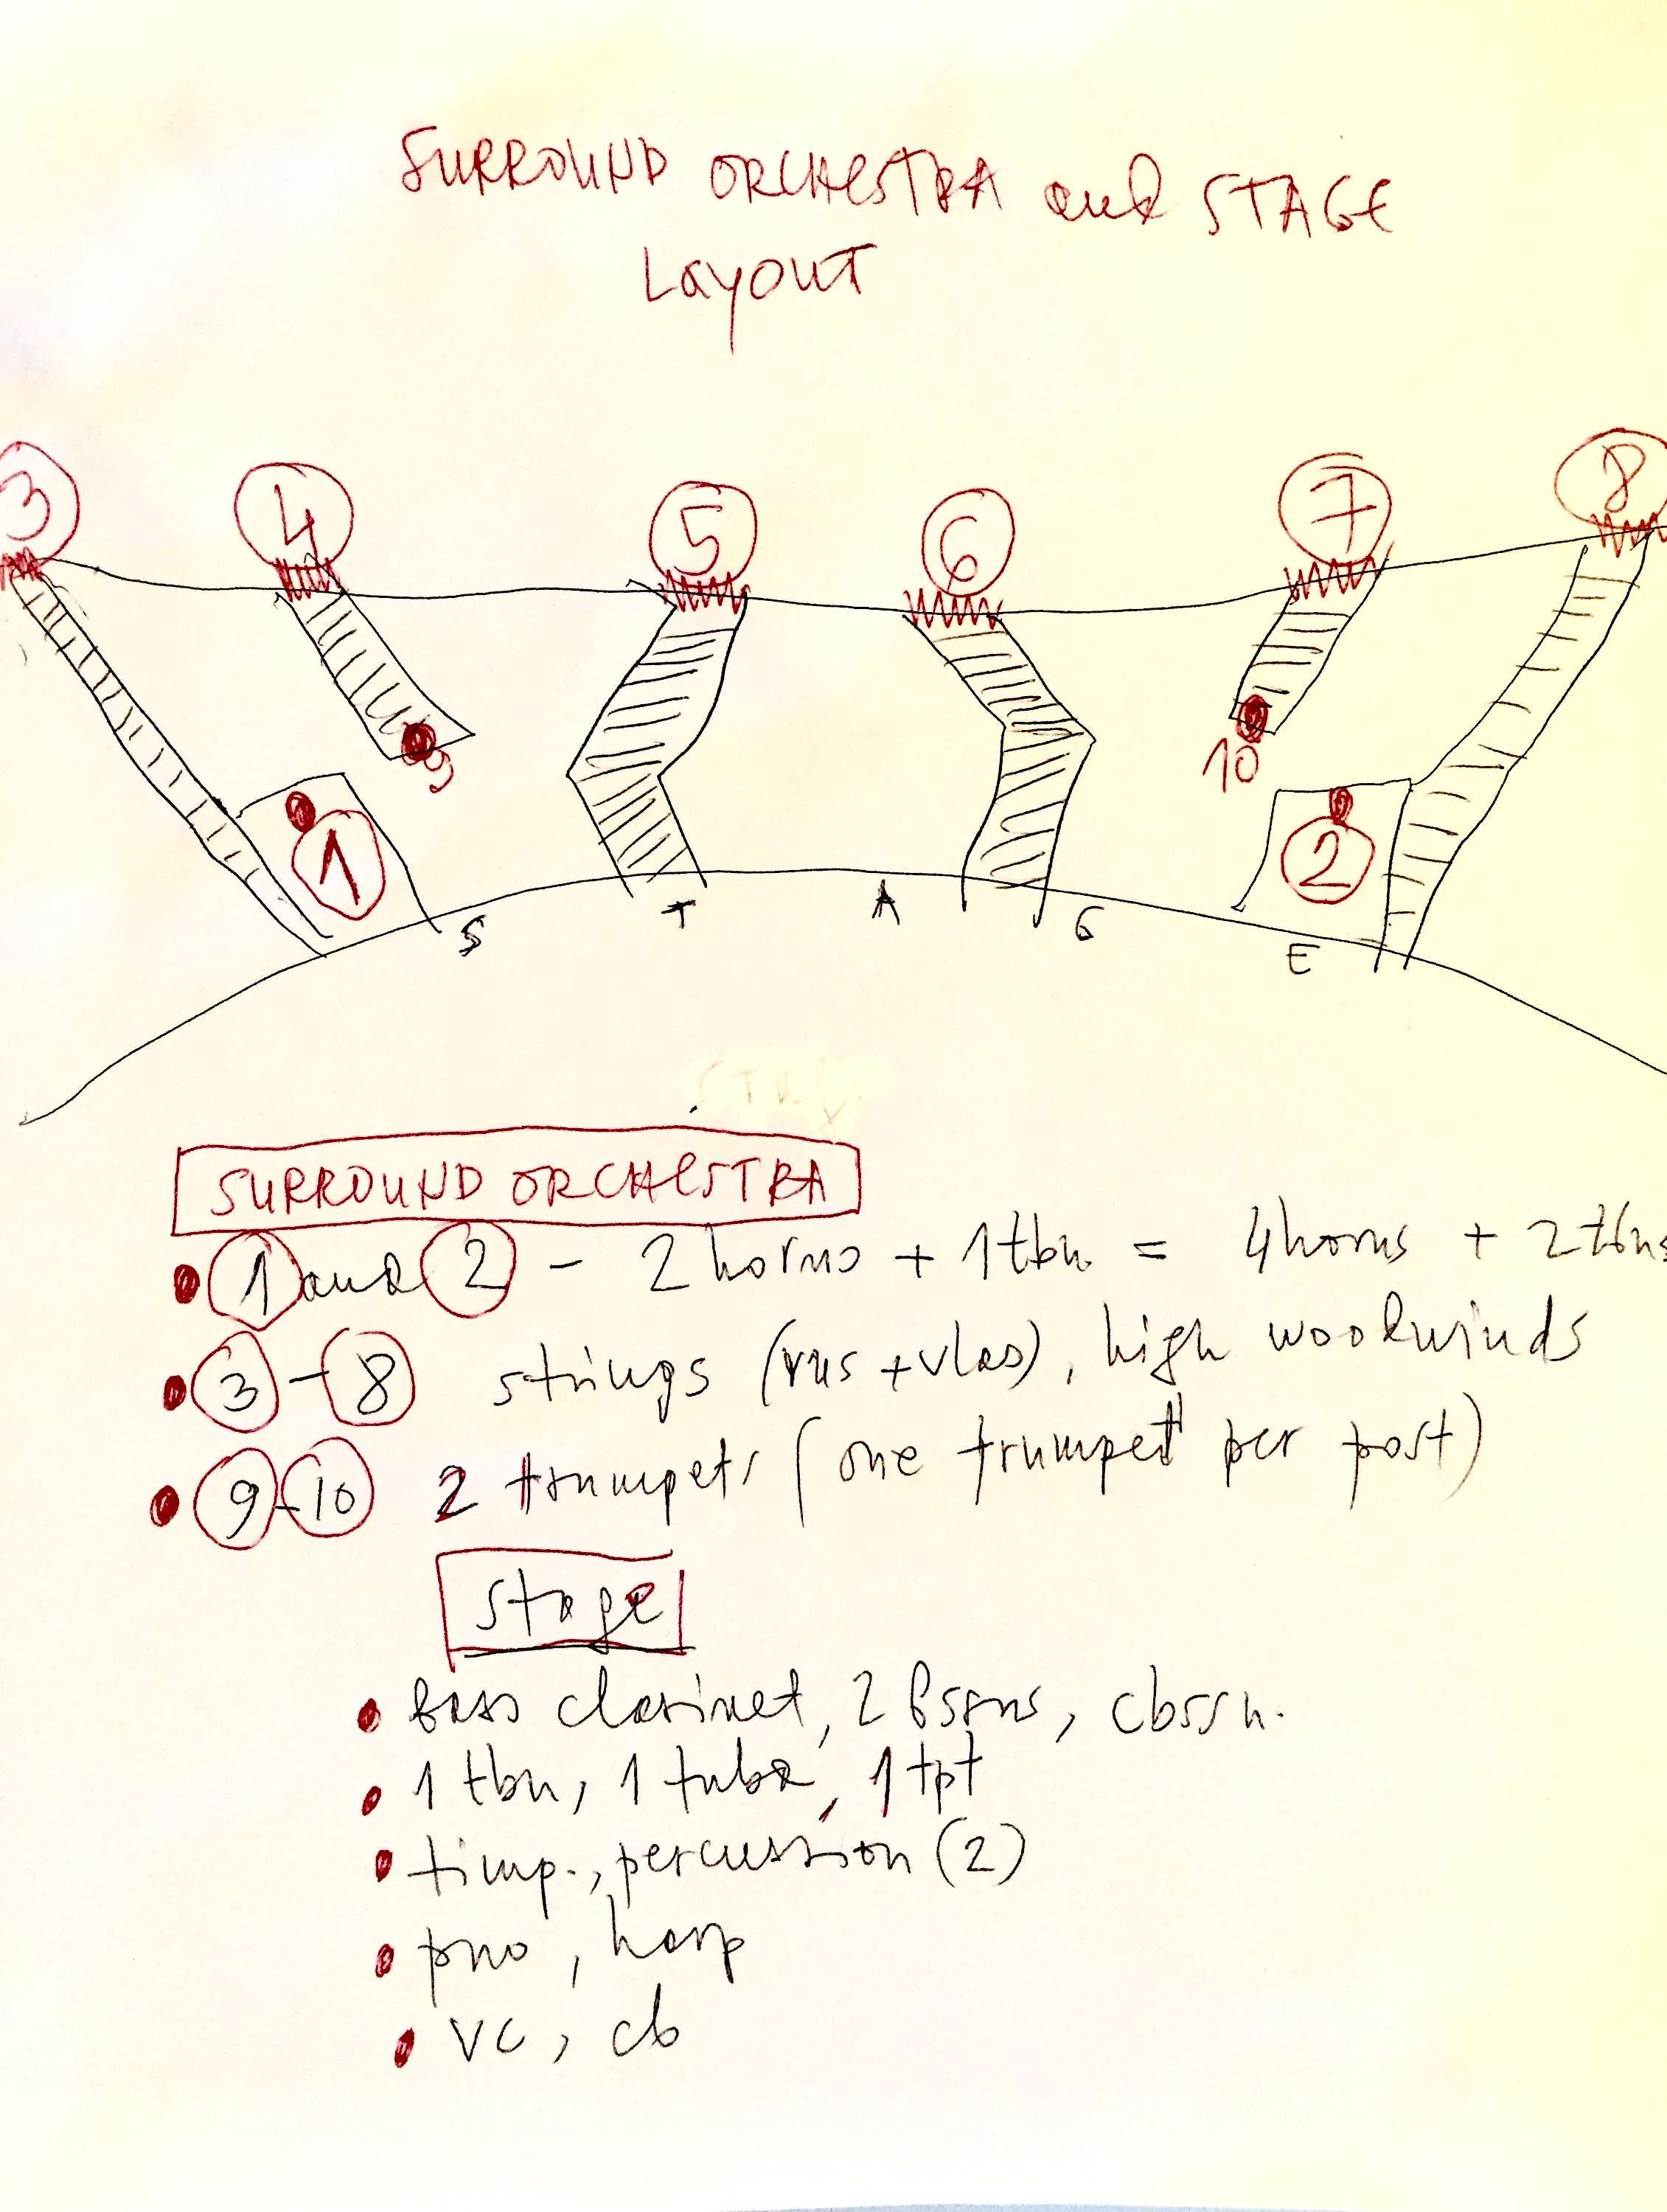 SURROUND ORCHESTRA and STAGE
Layout
3 4 5 6 7 8
9 10
1 2
S T A G E
SURROUND ORCHESTRA
1 and 2 - 2 horns + 1 tbn = 4 horns + 2 tbns
3 - 8 strings (vns + vlas), high woodwinds
9 - 10 2 trumpets (one trumpet per post)
stage
bass clarinet, 2 bssns, cbssn.
1 tbn, 1 tuba, 1 tpt
timp., percussion (2)
pno, harp
vc, cb